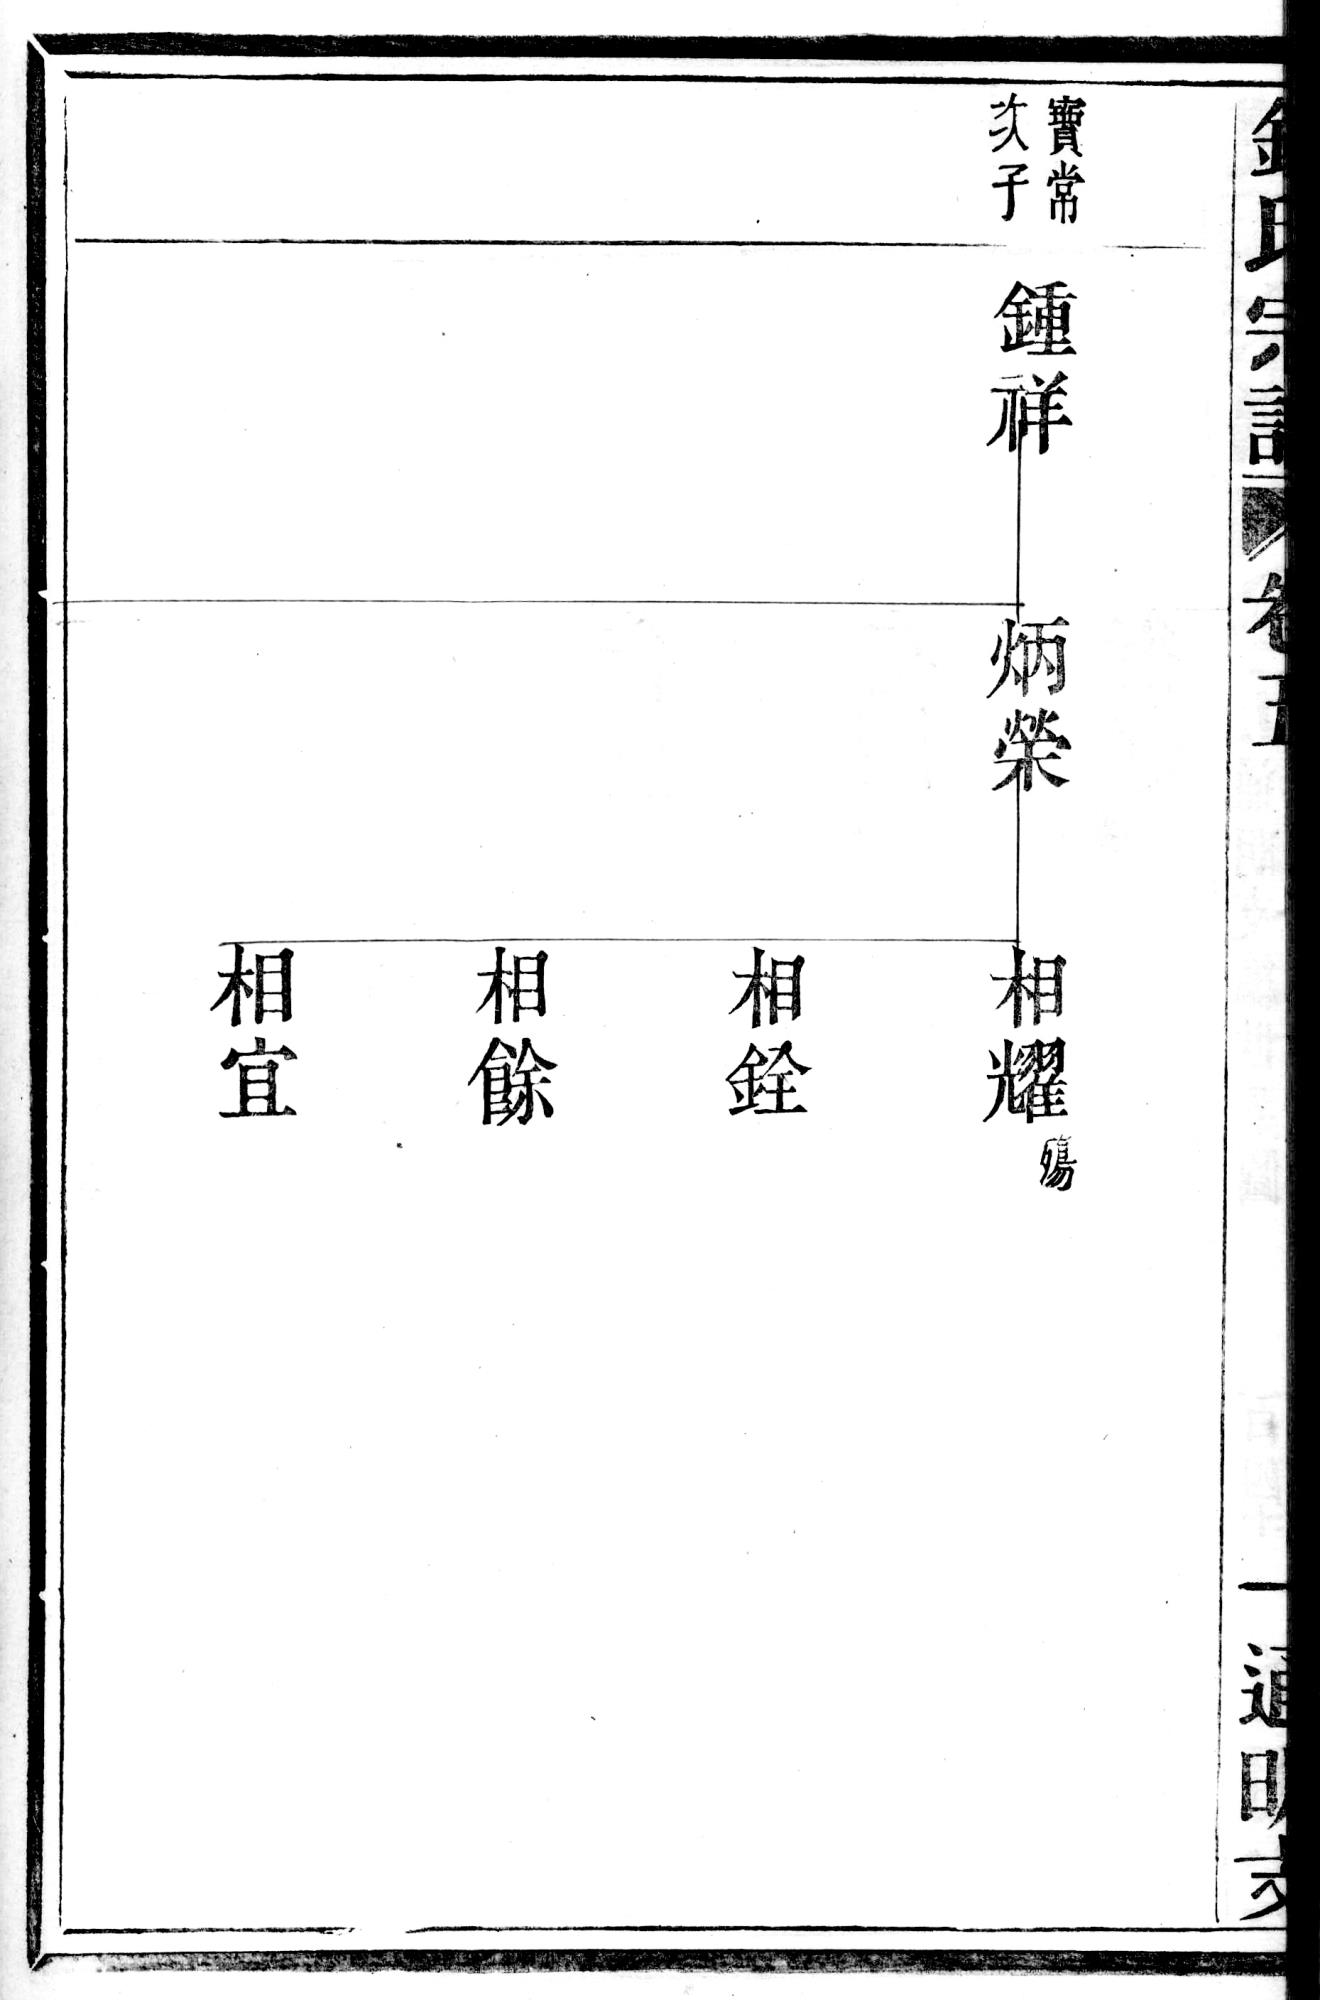 寶常
次子
鍾祥
炳榮
相耀殤
相銓
相餘
相宜
氏宗譜
卷五
一
通明支